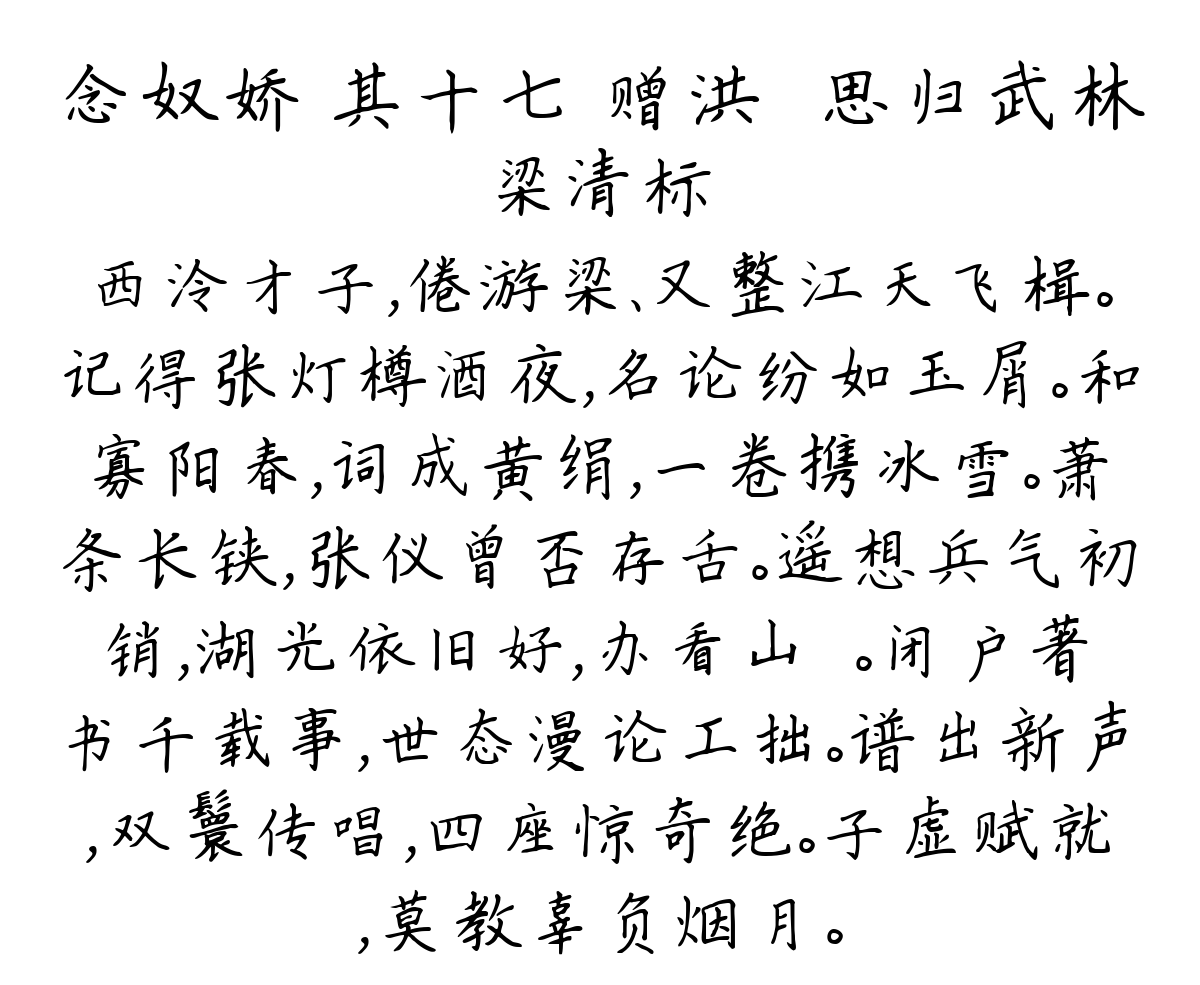 念奴娇 其十七 赠洪 思归武林
梁清标
西泠才子,倦游梁、又整江天飞楫。
记得张灯樽酒夜,名论纷如玉屑。和
寡阳春,词成黄绢,一卷携冰雪。萧
条长铗,张仪曾否存舌。遥想兵气初
销,湖光依旧好,办看山 。闭户著
书千载事,世态漫论工拙。谱出新声
,双鬟传唱,四座惊奇绝。子虚赋就
,莫教辜负烟月。